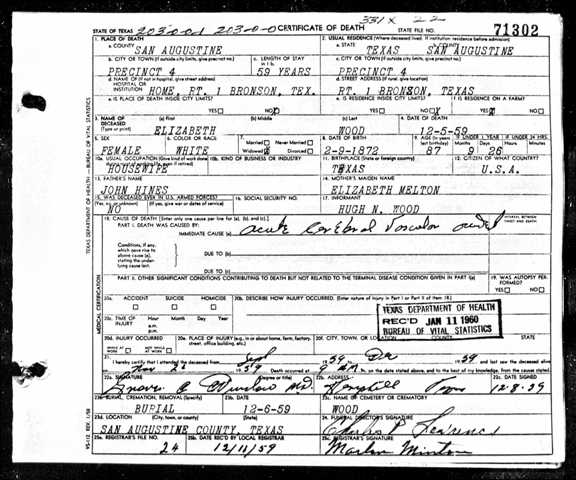 331 X 22
STATE OF TEXAS 203-0-01 203-0-0 CERTIFICATE OF DEATH STATE FILE NO. 71302
1. PLACE OF DEATH 2. USUAL RESIDENCE (Where deceased lived. If institution: residence before admission)
a. COUNTY a. STATE b. COUNTY
SAN AUGUSTINE TEXAS SAN AUGUSTINE
b. CITY OR TOWN (If outside city limits, give precinct no.) c. LENGTH OF STAY in 1 b. c. CITY OR TOWN (If outside city limits, give precinct no.)
PRECINCT 4 59 YEARS PRECINCT 4
d. NAME OF (If not in hospital, give street address) HOSPITAL OR INSTITUTION d. STREET ADDRESS (If rural, give location)
HOME, RT. 1 BRONSON, TEX. RT. 1 BRONSON, TEXAS
e. IS PLACE OF DEATH INSIDE CITY LIMITS? e. IS RESIDENCE INSIDE CITY LIMITS? f. IS RESIDENCE ON A FARM?
YES NO YES NO YES NO
3. NAME OF DECEASED (Type or print) (a) First (b) Middle (c) Last 4. DATE OF DEATH
ELIZABETH WOOD 12-5-59
5. SEX 6. COLOR OR RACE 7. Married Never Married 8. DATE OF BIRTH 9. AGE (In years last birthday) IF UNDER 1 YEAR IF UNDER 24 HRS.
FEMALE WHITE Widowed Divorced 2-9-1872 87 9 26
10a. USUAL OCCUPATION (Give kind of work done during most of working life, even if retired) 10b. KIND OF BUSINESS OR INDUSTRY 11. BIRTHPLACE (State or foreign country) 12. CITIZEN OF WHAT COUNTRY?
HOUSEWIFE TEXAS U.S.A.
13. FATHER'S NAME 14. MOTHER'S MAIDEN NAME
JOHN HINES ELIZABETH MELTON
15. WAS DECEASED EVER IN U.S. ARMED FORCES? (Yes, no, or unknown) (If yes, give war or dates of service) 16. SOCIAL SECURITY NO. 17. INFORMANT
NO HUGH N. WOOD
18. CAUSE OF DEATH [Enter only one cause per line for (a), (b), and (c).] INTERVAL BETWEEN ONSET AND DEATH
PART I. DEATH WAS CAUSED BY:
IMMEDIATE CAUSE (a) Acute Cerebral Vascular
Conditions, if any, which gave rise to above cause (a), stating the underlying cause last.
DUE TO (b)
DUE TO (c)
PART II. OTHER SIGNIFICANT CONDITIONS CONTRIBUTING TO DEATH BUT NOT RELATED TO THE TERMINAL DISEASE CONDITION GIVEN IN PART I(a) 19. WAS AUTOPSY PERFORMED?
YES NO
20a. ACCIDENT SUICIDE HOMICIDE 20b. DESCRIBE HOW INJURY OCCURRED. (Enter nature of injury in Part I or Part II of item 18.)
20c. TIME OF INJURY Hour Month Day Year
a.m.
p.m.
TEXAS DEPARTMENT OF HEALTH
REC'D JAN 11 1960
BUREAU OF VITAL STATISTICS
20d. INJURY OCCURRED 20e. PLACE OF INJURY (e.g., in or about home, farm, factory, street, office building, etc.) 20f. CITY, TOWN, OR LOCATION COUNTY STATE
WHILE AT WORK NOT WHILE AT WORK
21. I hereby certify that I attended the deceased from Sept 1959 to Dec 1959 and last saw the deceased alive
on Nov 1959 Death occurred at M, on the date stated above, and to the best of my knowledge, from the causes stated.
22a. SIGNATURE (Degree or title) 22b. ADDRESS 22c. DATE SIGNED
M.D. Hemphill 12-8-59
23a. BURIAL, CREMATION, REMOVAL (Specify) 23b. DATE 23c. NAME OF CEMETERY OR CREMATORY
BURIAL 12-6-59 WOOD
23d. LOCATION 24. FUNERAL DIRECTOR'S SIGNATURE
SAN AUGUSTINE COUNTY, TEXAS Charles P.
25a. REGISTRAR'S FILE NO. 25b. DATE REC'D BY LOCAL REGISTRAR 25c. REGISTRAR'S SIGNATURE
24 12/11/59 Marlon Minton
TEXAS DEPARTMENT OF HEALTH — BUREAU OF VITAL STATISTICS
MEDICAL CERTIFICATION
VS-112 REV. 1/58